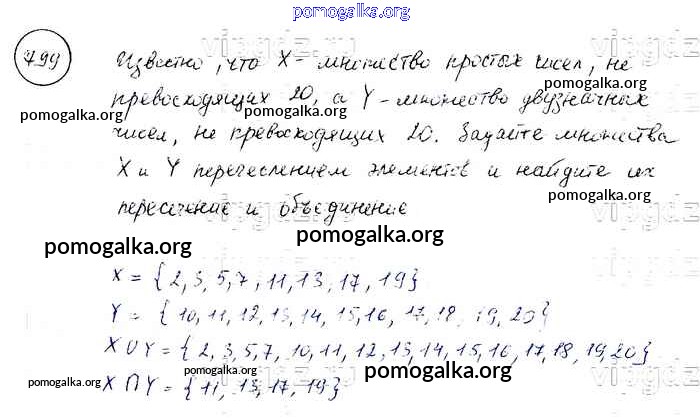 pomogalka.org
799
Известно, что X - множество простых чисел, не
pomogalka.org
превосходящих 20, а Y - множество двузначных
pomogalka.org
чисел, не превосходящих 20. Задайте множества
X и Y перечеслением элементов и найдите их
pomogalka.org
пересечение и объединение
pomogalka.org
pomogalka.org
X = {2, 3, 5, 7, 11, 13, 17, 19}
Y = {10, 11, 12, 13, 14, 15, 16, 17, 18, 19, 20}
X ∪ Y = {2, 3, 5, 7, 10, 11, 12, 13, 14, 15, 16, 17, 18, 19, 20}
pomogalka.org
X ∩ Y = {11, 13, 17, 19}
pomogalka.org
pomogalka.org